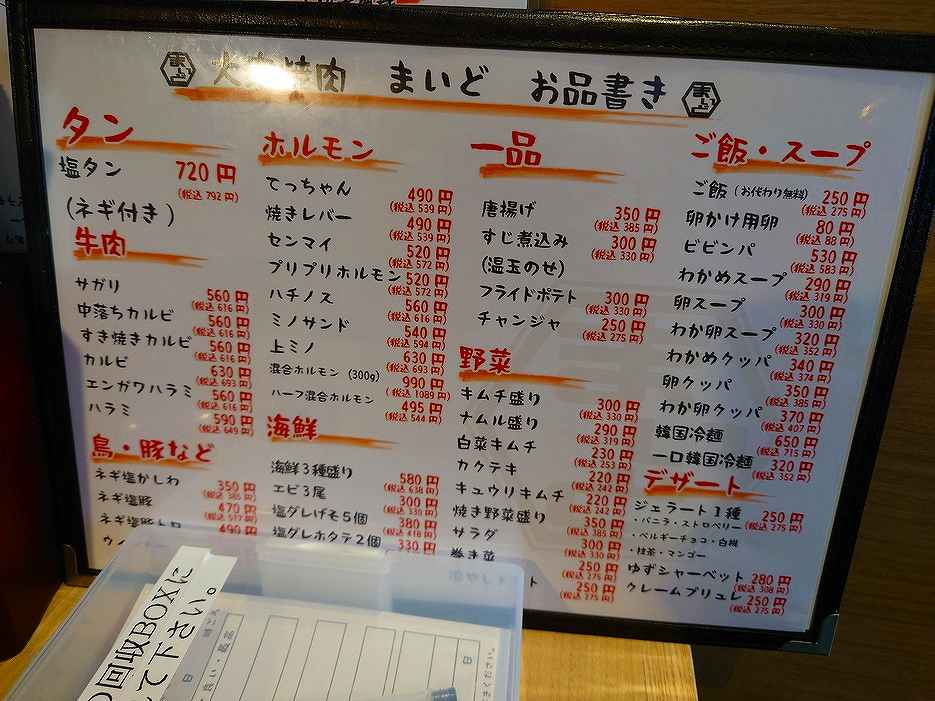 焼肉 まいど お品書き
タン
塩タン 720円
(税込 792円)
(ネギ付き)
牛肉
サガリ 560円
(税込 616円)
中落ちカルビ 560円
(税込 616円)
すき焼きカルビ 560円
(税込 616円)
カルビ 630円
(税込 693円)
エンガワハラミ 560円
(税込 616円)
ハラミ 590円
(税込 649円)
鳥・豚など
ネギ塩かしわ 350円
(税込 385円)
ネギ塩豚 470円
(税込 517円)
ネギ塩豚 490円
ウイ
ホルモン
てっちゃん 490円
(税込 539円)
焼きレバー 490円
(税込 539円)
センマイ 520円
(税込 572円)
プリプリホルモン 520円
(税込 572円)
ハチノス 560円
(税込 616円)
ミノサンド 540円
(税込 594円)
上ミノ 630円
(税込 693円)
混合ホルモン (300g) 990円
(税込 1089円)
ハーフ混合ホルモン 495円
(税込 544円)
海鮮
海鮮3種盛り 580円
(税込 638円)
エビ3尾 300円
(税込 330円)
塩ダレげそ5個 380円
(税込 418円)
塩ダレホタテ2個 330円
一品
唐揚げ 350円
(税込 385円)
すじ煮込み 300円
(税込 330円)
(温玉のせ)
フライドポテト 300円
(税込 330円)
チャンジャ 250円
(税込 275円)
野菜
キムチ盛り 300円
(税込 330円)
ナムル盛り 290円
(税込 319円)
白菜キムチ 230円
(税込 253円)
カクテキ 220円
(税込 242円)
キュウリキムチ 220円
(税込 242円)
焼き野菜盛り 350円
(税込 385円)
サラダ 300円
(税込 330円)
巻き菜 250円
(税込 275円)
冷やし ト 250円
(税込 275円)
ご飯・スープ
ご飯(お代わり無料) 250円
(税込 275円)
卵かけ用卵 80円
(税込 88円)
ビビンパ 530円
(税込 583円)
わかめスープ 290円
(税込 319円)
卵スープ 300円
(税込 330円)
わか卵スープ 320円
(税込 352円)
わかめクッパ 340円
(税込 374円)
卵クッパ 350円
(税込 385円)
わか卵クッパ 370円
(税込 407円)
韓国冷麺 650円
(税込 715円)
一口韓国冷麺 320円
(税込 352円)
デザート
ジェラート1種 250円
(税込 275円)
・バニラ・ストロベリー
・ベルギーチョコ・白桃
・抹茶・マンゴー
ゆずシャーベット 280円
(税込 308円)
クレームブリュレ 250円
(税込 275円)
回収BOXに
て下さい。